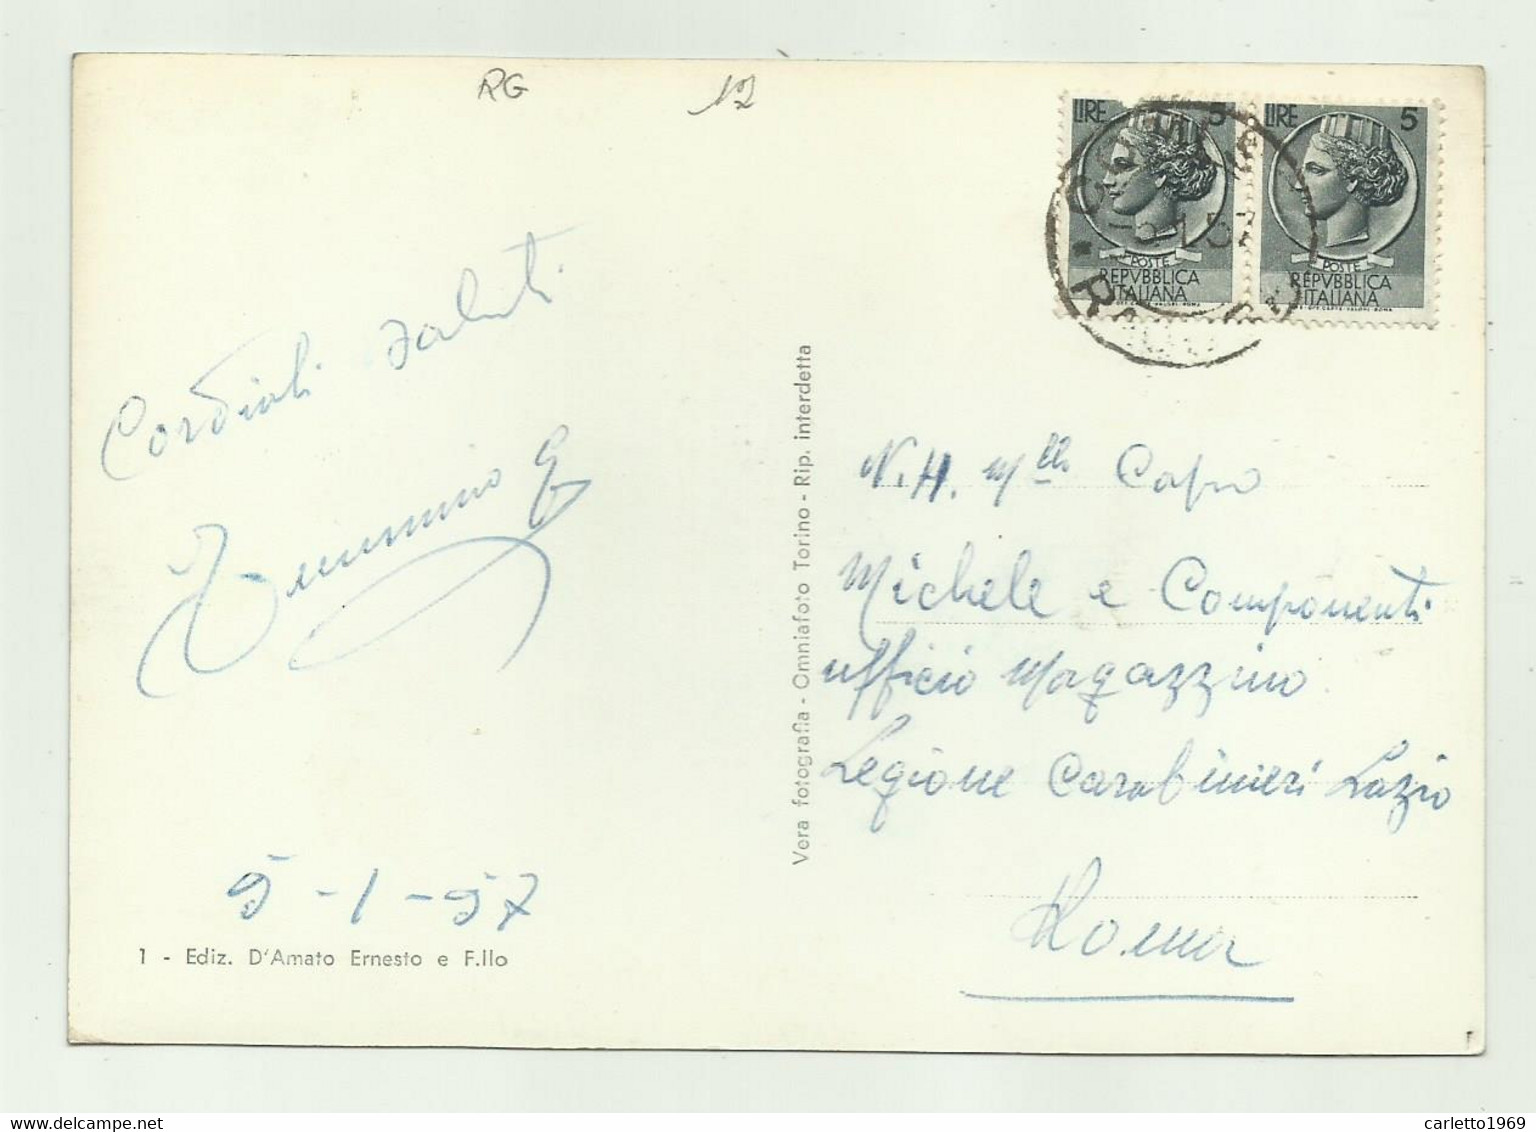 RG
12
LIRE 5
POSTE
REPVBBLICA
ITALIANA
LIRE 5
POSTE
REPVBBLICA
ITALIANA
COMISO
5.1.57
Cordiali saluti
5-1-57
1 - Ediz. D'Amato Ernesto e F.llo
Vera fotografia - Omniafoto Torino - Rip. interdetta
N.H. M.llo Capo
Michele e Componenti
ufficio Magazzino
Legione Carabinieri Lazio
Roma
carletto1969